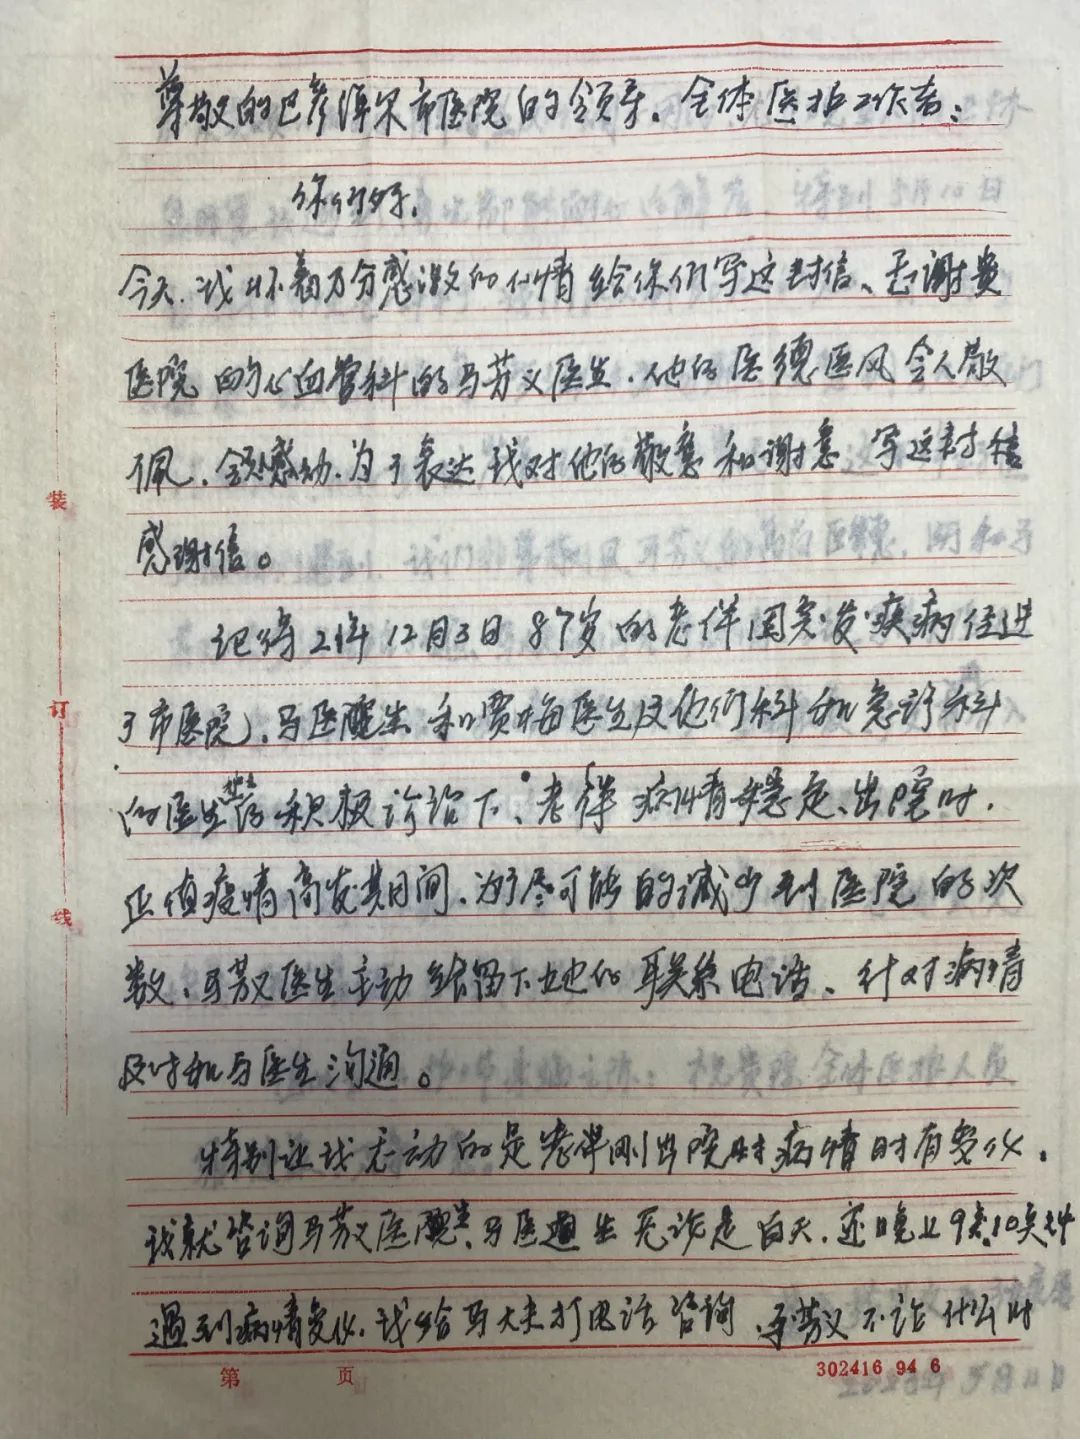 尊敬的巴彦淖尔市医院的领导、全体医护工作者:
你们好,
今天,我怀着万分感激的心情给你们写这封信、感谢贵
医院的心血管科的马芳义医生,他的医德医风令人敬
佩,令人感动,为了表达我对他的敬意和谢意 写这封信
感谢信。
记得21年12月3日87岁的老伴因突发疾病住进
了市医院,马医生和贾梅医生及他们科和急诊科
的医生的积极诊治下、老伴病情稳定、出院时,
正值疫情高发期间,为了尽可能的减少到医院的次
数,马芳义医生主动给留下她的联系电话、针对病情
及时和马医生沟通。
特别让我感动的是老伴刚出院时病情时有变化,
我就咨询马芳义医生,马医生无论是白天,还晚上9点、10点钟
遇到病情变化,我给马大夫打电话咨询,马芳义不论什么时
装
订
线
第 页
302416 94 6